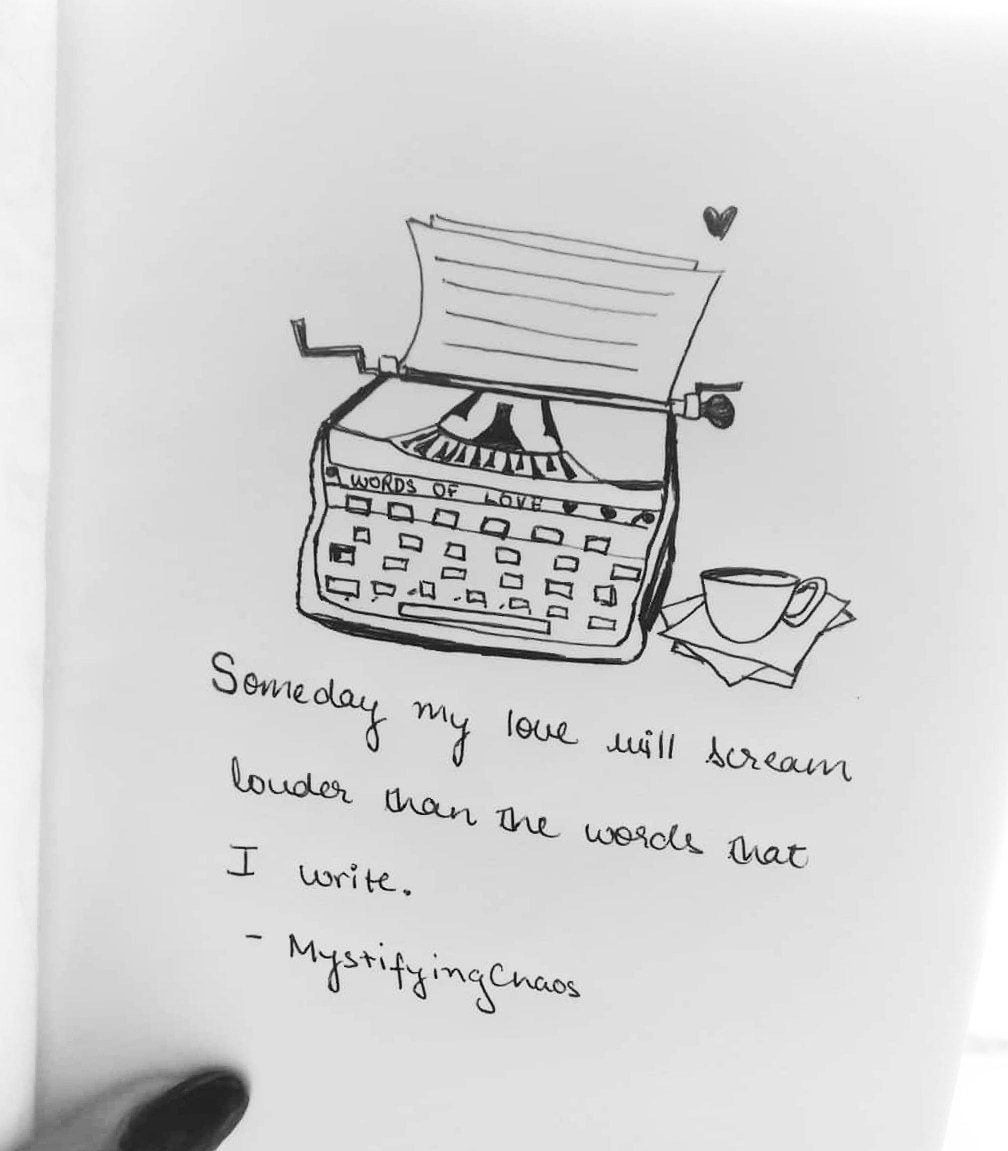 WORDS OF LOVE
Someday my love will scream
louder than the words that
I write.
- MystifyingChaos